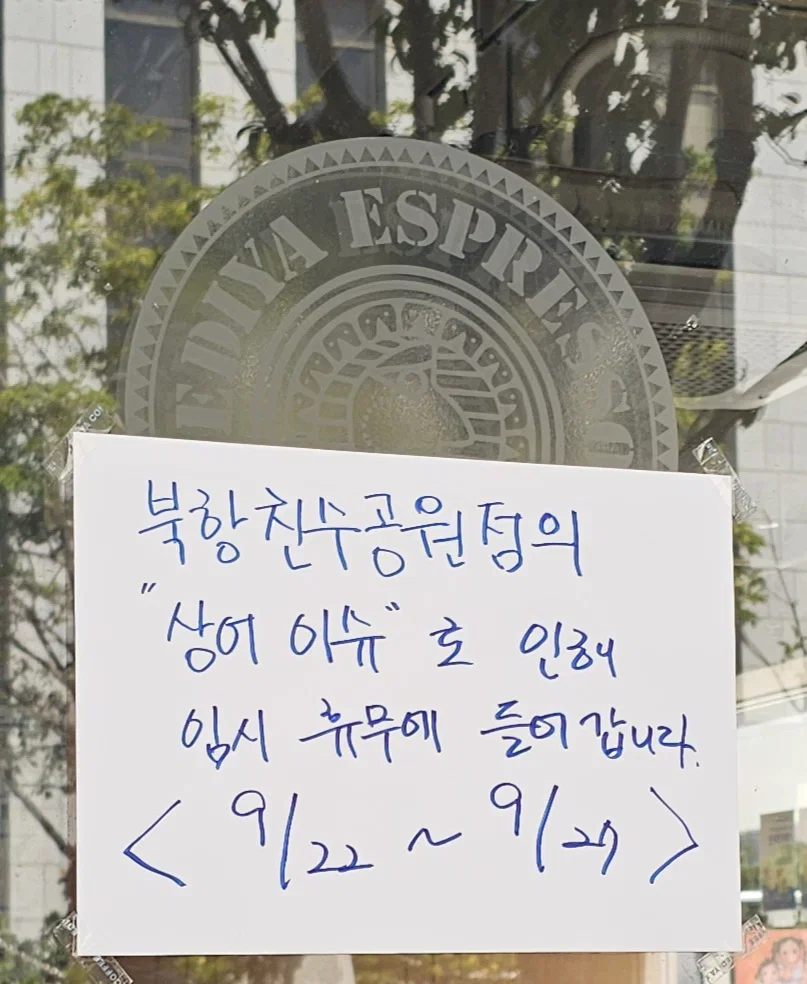 EDIYA ESPRESSO
북항친수공원점의
"상어 이슈"로 인해
임시 휴무에 들어갑니다.
< 9/22 ~ 9/27 >